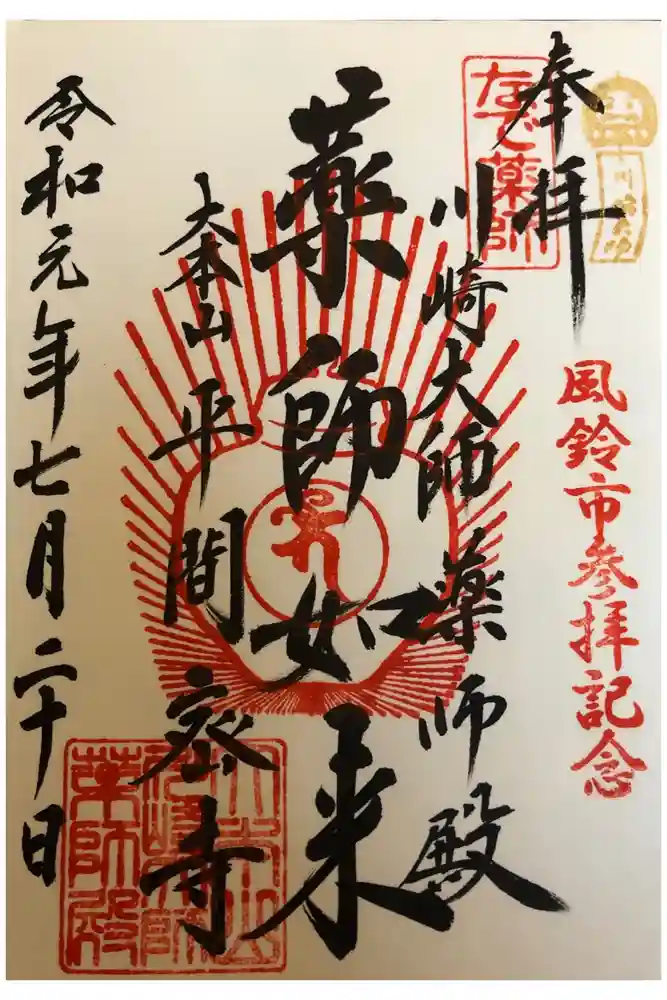 奉拝
なで薬師
川崎大師
風鈴市参拝記念
川崎大師薬師殿
薬師如来
大本山平間密寺
令和元年七月二十日
大本山
川崎大師
薬師殿